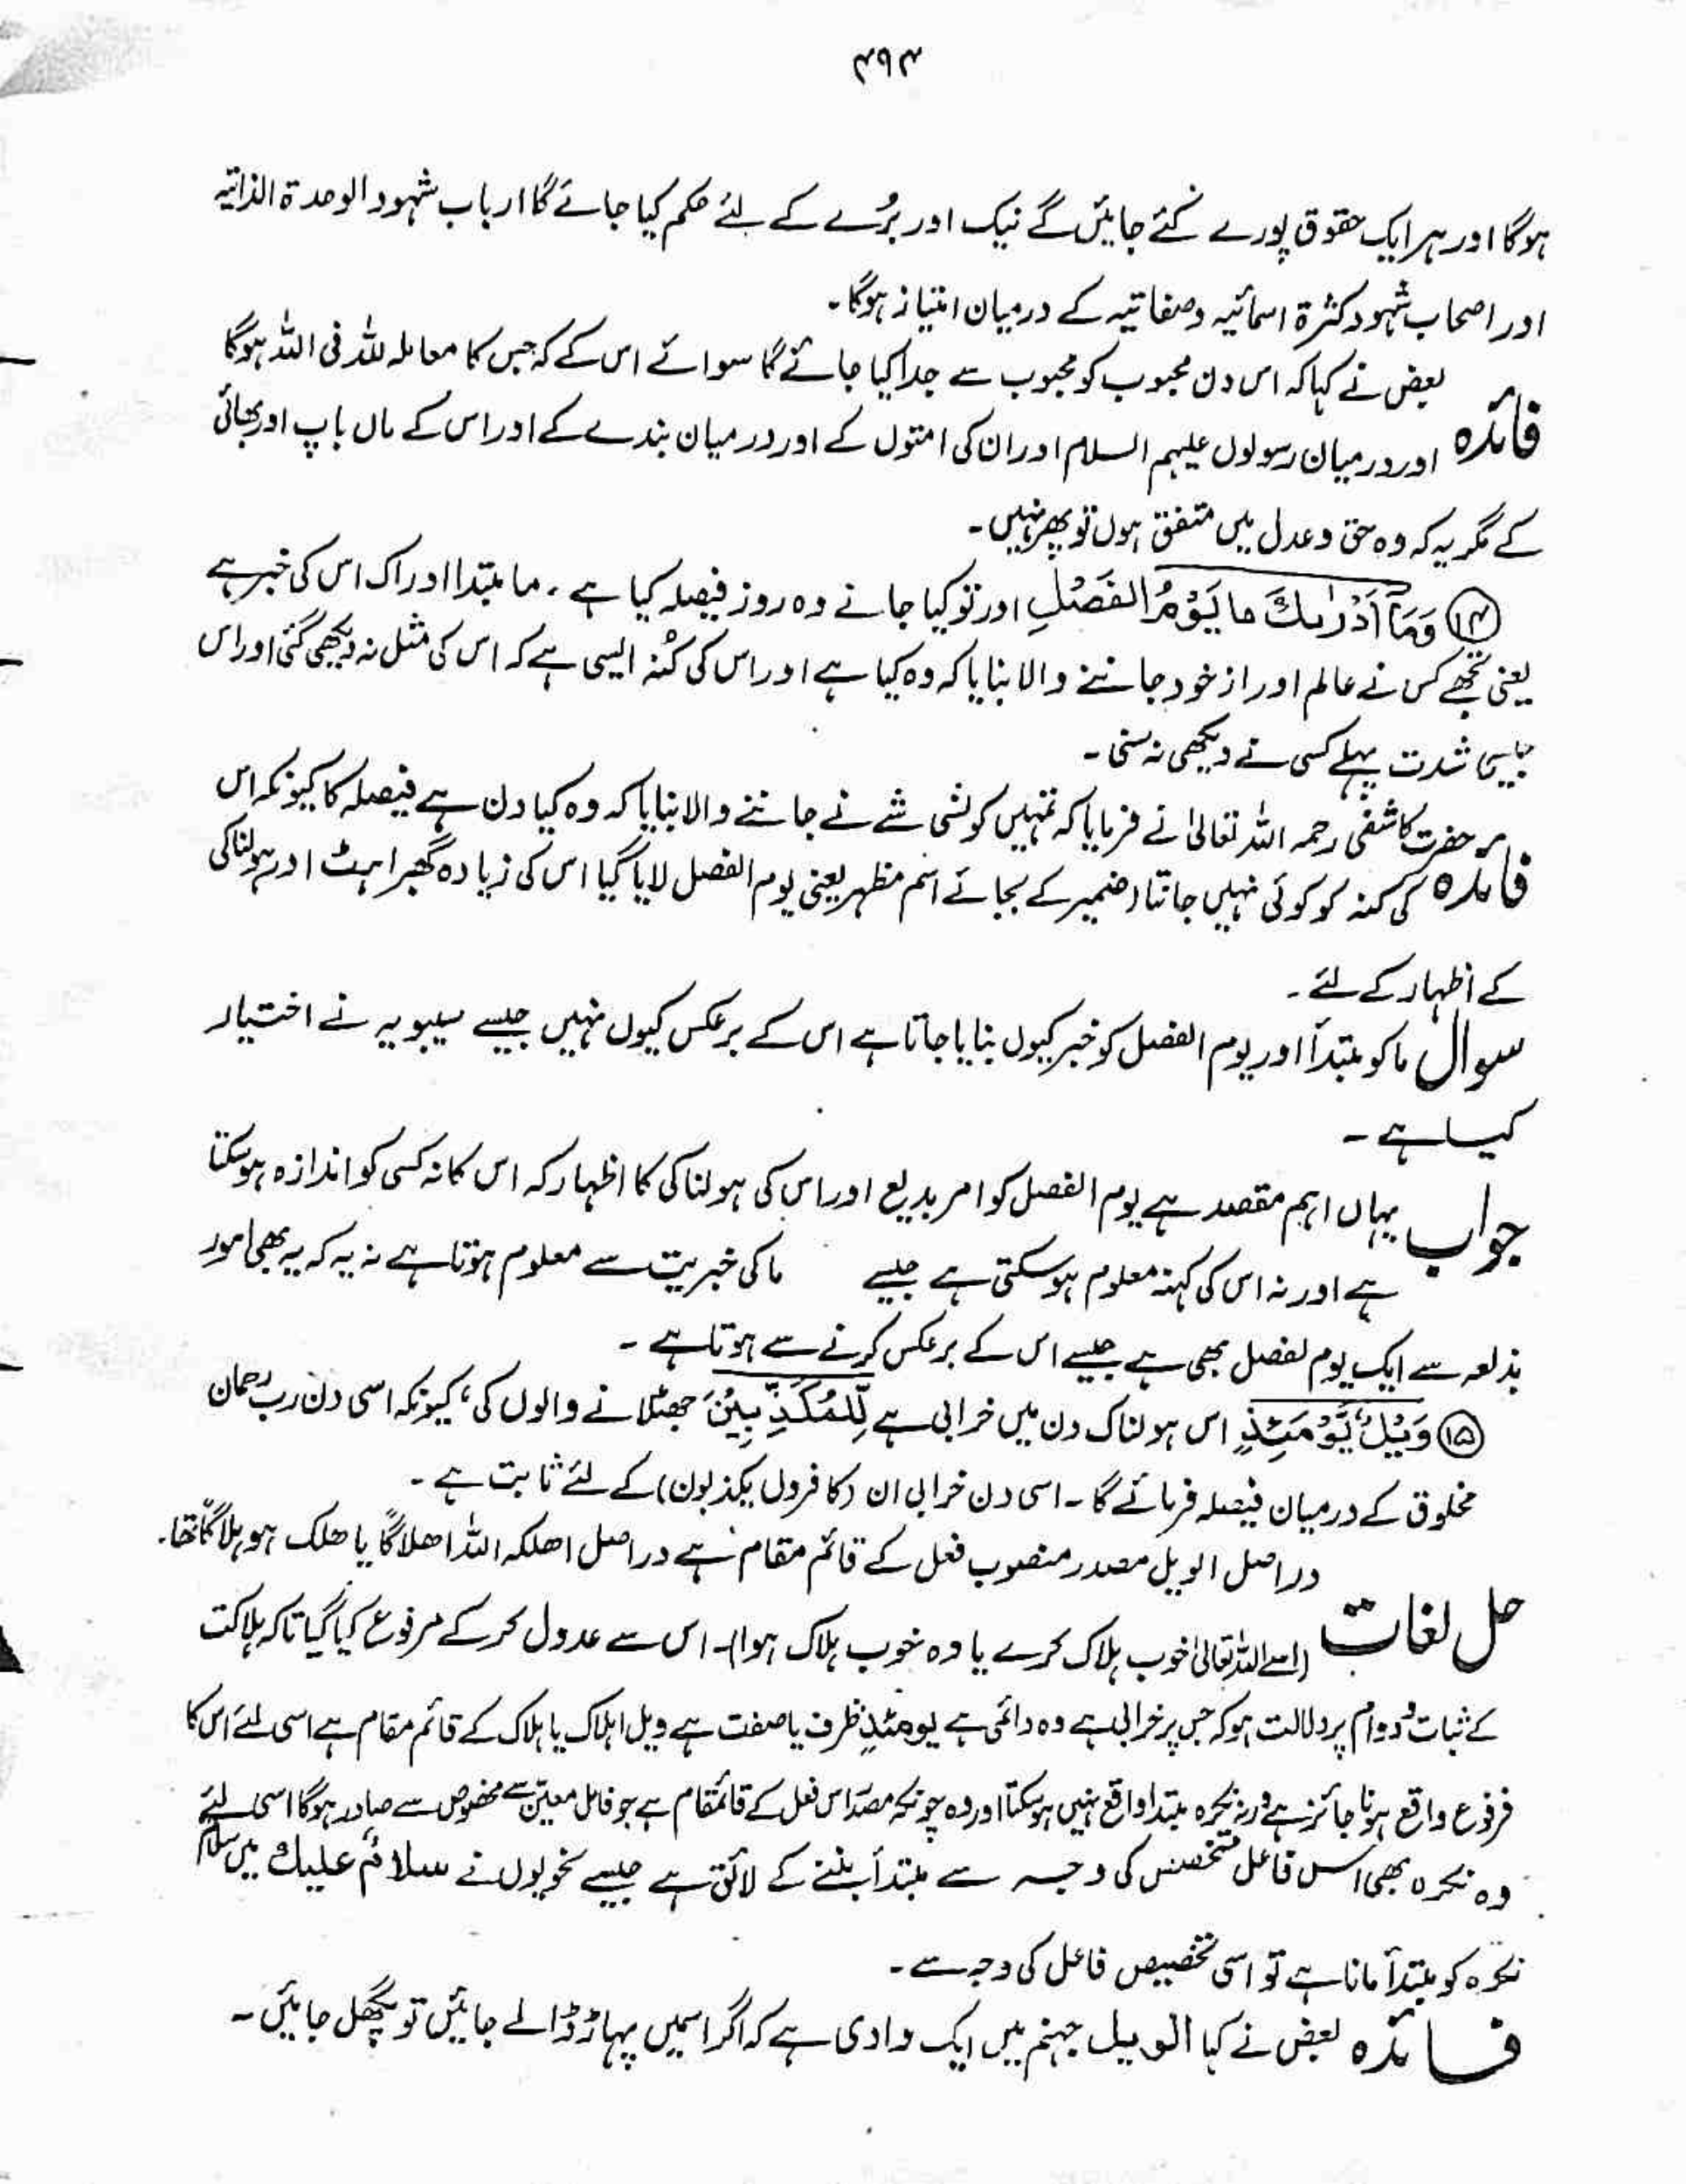 ۴۹۴
ہوگا اور ہر ایک حقوق پورے کئے جائیں گے نیک اور بُرے کے لئے حکم کیا جائے گا ارباب شہود الوحدۃ الذاتیہ
اور اصحاب شہود کثرۃ اسمائیہ وصفاتیہ کے درمیان امتیاز ہوگا۔
فائدہ بعض نے کہا کہ اس دن محبوب کو محبوب سے جدا کیا جائے گا سوائے اس کے کہ جس کا معاملہ للہ فی اللہ ہوگا
اور درمیان رسولوں علیہم السلام اور ان کی امتوں کے اور درمیان بندے کے اور اس کے ماں باپ اور بھائی
کے مگر یہ کہ وہ حق وعدل میں متفق ہوں تو پھر نہیں۔
⑭ وَمَآ اَدْرٰىكَ مَا يَوْمُ الْفَصْلِ اور تو کیا جانے وہ روز فیصلہ کیا ہے، ما مبتدا ادراک اس کی خبر ہے
یعنی تجھے کس نے عالم اور از خود جاننے والا بنایا کہ وہ کیا ہے اور اس کی کُنہ ایسی ہے کہ اس کی مثل نہ دیکھی گئی اور اس
جیسی شدت پہلے کسی نے دیکھی نہ سنی۔
فائدہ حضرت کاشفی رحمہ اللہ تعالیٰ نے فرمایا کہ تمہیں کونسی شے نے جاننے والا بنایا کہ وہ کیا دن ہے فیصلہ کا کیونکہ اس
کی کنہ کو کوئی نہیں جانتا (ضمیر کے بجائے اسم مظہر یعنی یوم الفصل لایا گیا اس کی زیادہ گھبراہٹ اور ہولناکی
کے اظہار کے لئے۔
سوال ما کو مبتدأ اور یوم الفصل کو خبر کیوں بنایا جاتا ہے اس کے برعکس کیوں نہیں جیسے سیبویہ نے اختیار
کیا ہے۔
جواب یہاں اہم مقصد ہے یوم الفصل کو امر بدیع اور اس کی ہولناکی کا اظہار کہ اس کا نہ کسی کو اندازہ ہوسکتا
ہے اور نہ اس کی کہنہ معلوم ہوسکتی ہے جیسے ما کی خبریت سے معلوم ہوتا ہے نہ یہ کہ یہ بھی امور
بذلعہ سے ایک یوم لفصل بھی ہے جیسے اس کے برعکس کرنے سے ہوتا ہے۔
⑮ وَيْلٌ يَّوْمَئِذٍ اس ہولناک دن میں خرابی ہے لِّلْمُكَذِّبِيْنَ جھٹلانے والوں کی، کیونکہ اسی دن رب رحمان
مخلوق کے درمیان فیصلہ فرمائے گا۔ اسی دن خرابی ان (کافروں یکذبون) کے لئے ثابت ہے۔
حل لغات دراصل الویل مصدر منصوب فعل کے قائم مقام ہے دراصل اھلکہ اللہ اھلاکًا یا ھلک ہو ہلاکًا تھا۔
(اسے اللہ تعالیٰ خوب ہلاک کرے یا وہ خوب ہلاک ہوا)۔ اس سے عدول کرکے مرفوع کیا گیا تاکہ ہلاکت
کے ثبات ودوام پر دلالت ہو کہ جس پر خرابی ہے وہ دائمی ہے یومئذٍ ظرف یا صفت ہے ویل اہلاک یا ہلاک کے قائم مقام ہے اسی لئے اس کا
فرفوع واقع ہونا جائز ہے ورنہ نکرہ مبتدا واقع نہیں ہوسکتا اور وہ چونکہ مصدر اس فعل کے قائمقام ہے جو فاعل معیّن سے مخصوص سے صادر ہوگا اسی لئے
وہ نکرہ بھی اس فاعل متخصص کی وجہ سے مبتدأ بننے کے لائق ہے جیسے نحویوں نے سلامٌ علیك میں سلام
نکرہ کو مبتدأ مانا ہے تو اسی تخصیص فاعل کی وجہ سے۔
فائدہ بعض نے کہا الویل جہنم میں ایک وادی ہے کہ اگر اسمیں پہاڑ ڈالے جائیں تو پگھل جائیں۔